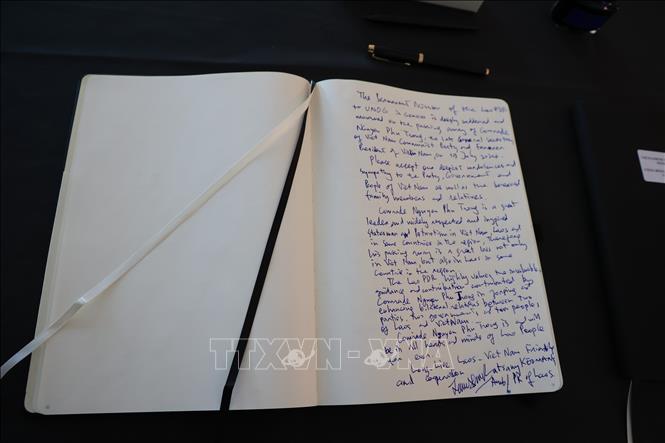 The Permanent Mission of the Lao PDR
to UNOG in Geneva is deeply saddened and
mourned on the passing away of Comrade
Nguyen Phu Trong, the late General Secretary
of Viet Nam Communist Party and former
President of Viet Nam, on 19 July 2024.
Please accept our deepest condolences and
sympathy to the Party, Government and
People of Viet Nam as well as the bereaved
family members and relatives.
Comrade Nguyen Phu Trong is a great
leader and widely respected and inspired
statesman and Patriotism in Viet Nam, Laos and
in some countries in the region, therefore
his passing away is a great loss not only
in Viet Nam but also in Laos in some
countries in the region.
The Lao PDR highly values the invaluable
guidance and contribution contributed by
Comrade Nguyen Phu Trong in forging and
enhancing bilateral relations between two
parties, two governments of two peoples
of Laos and Viet Nam.
Comrade Nguyen Phu Trong is and will
be in all hearts and minds of Lao People
for ever.
Long-live Laos - Viet Nam Friendship
and cooperation
Amb/ PR of Laos.
TTXVN - VNA